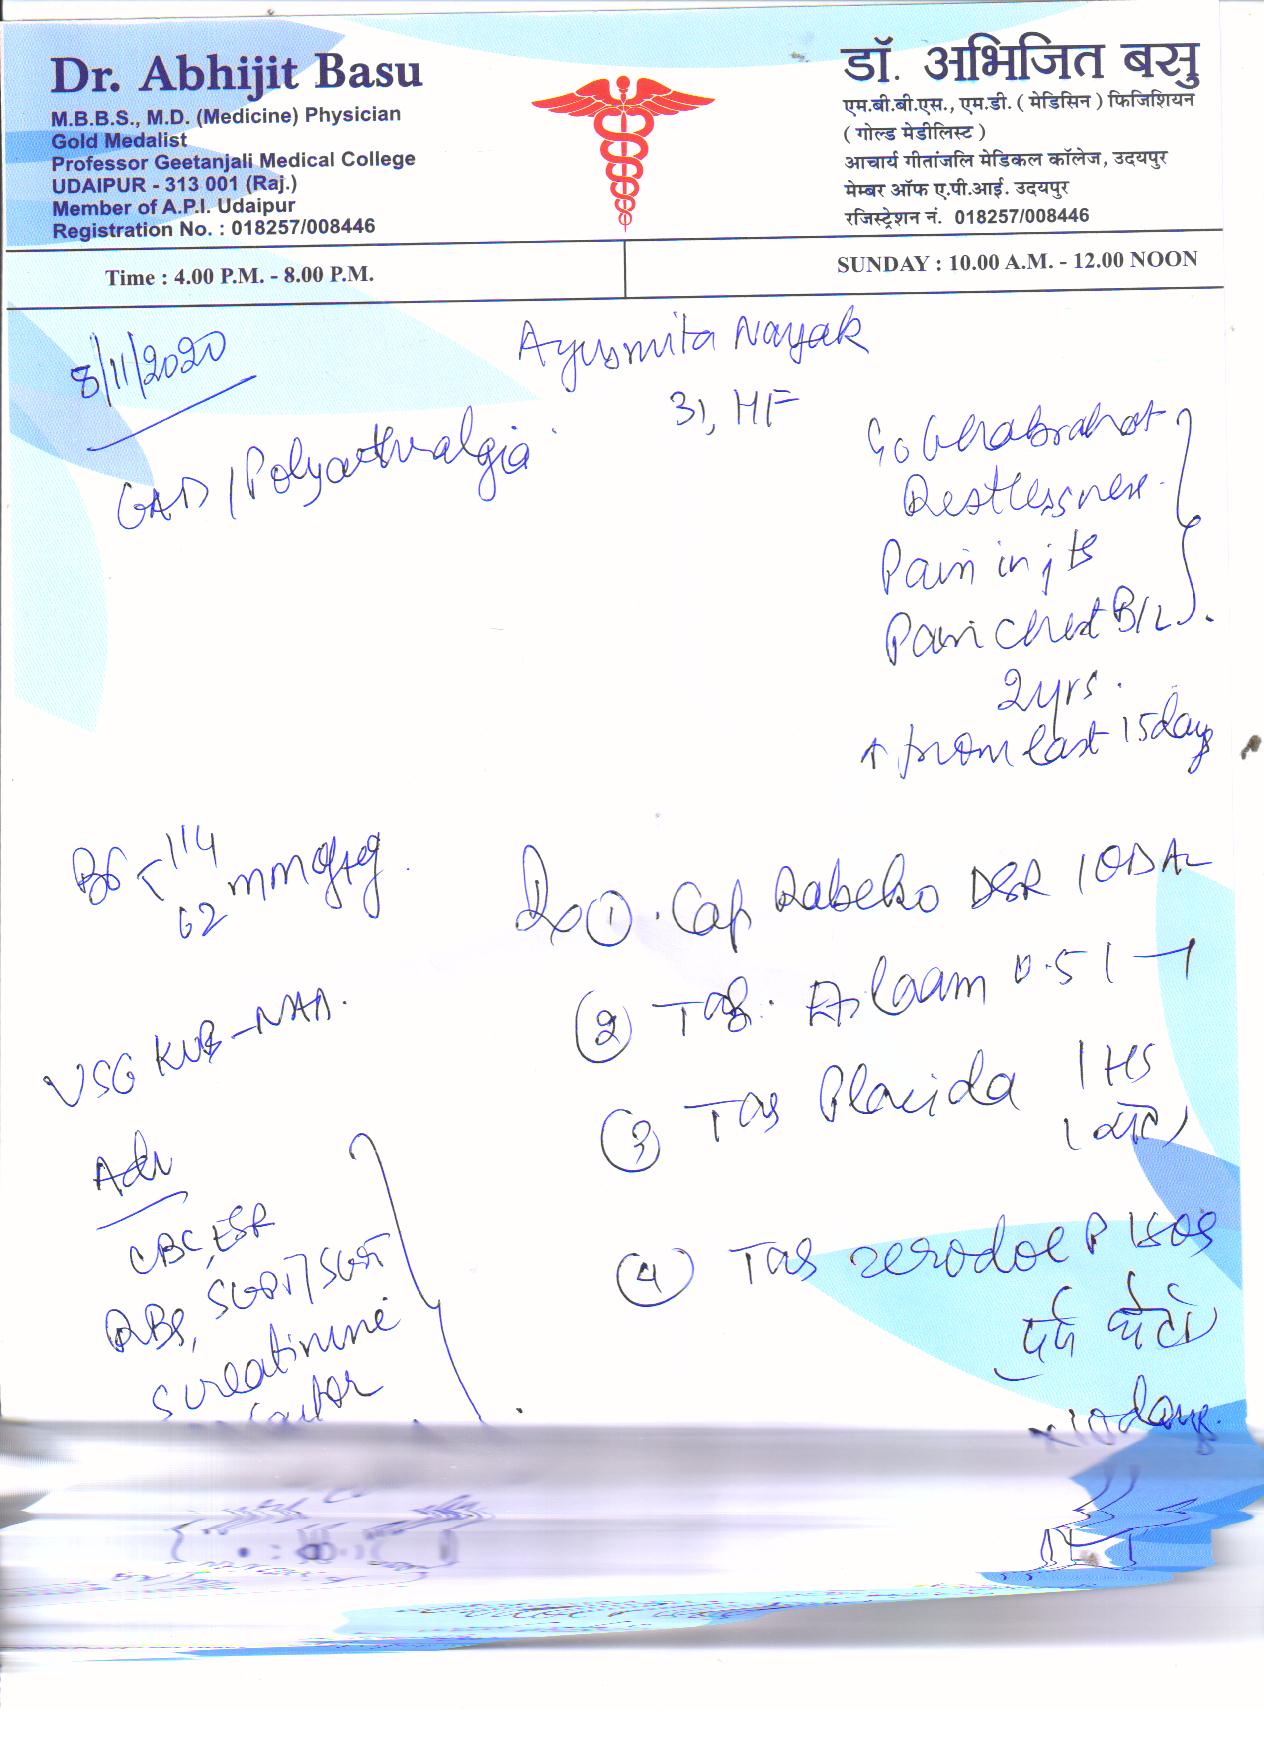 Dr. Abhijit Basu
M.B.B.S., M.D. (Medicine) Physician
Gold Medalist
Professor Geetanjali Medical College
UDAIPUR - 313 001 (Raj.)
Member of A.P.I. Udaipur
Registration No. : 018257/008446
डॉ. अभिजित बसु
एम.बी.बी.एस., एम.डी. ( मेडिसिन ) फिजिशियन
( गोल्ड मेडीलिस्ट )
आचार्य गीतांजलि मेडिकल कॉलेज, उदयपुर
मेम्बर ऑफ ए.पी.आई. उदयपुर
रजिस्ट्रेशन नं. 018257/008446
Time : 4.00 P.M. - 8.00 P.M.
SUNDAY : 10.00 A.M. - 12.00 NOON
8/11/2020
Ayusmita Nayak
31, HF
GAD / Polyarthralgia
Ghabrahat
Restlessness
Pain in jts
Pain Chest B/L
2yrs.
↑ from last 15days
114
62 mmofHg
USG KUB - NAD.
Rx ① Cap Rabeko DSR 1 OD AC
② Tab. 0.5 1 - 1
③ Tab Placida 1 HS
④ Tab Zerodol P 1 SOS
x 10 days.
Adv
CBC, ESR
RBS, SGPT/SGOT
S creatinine